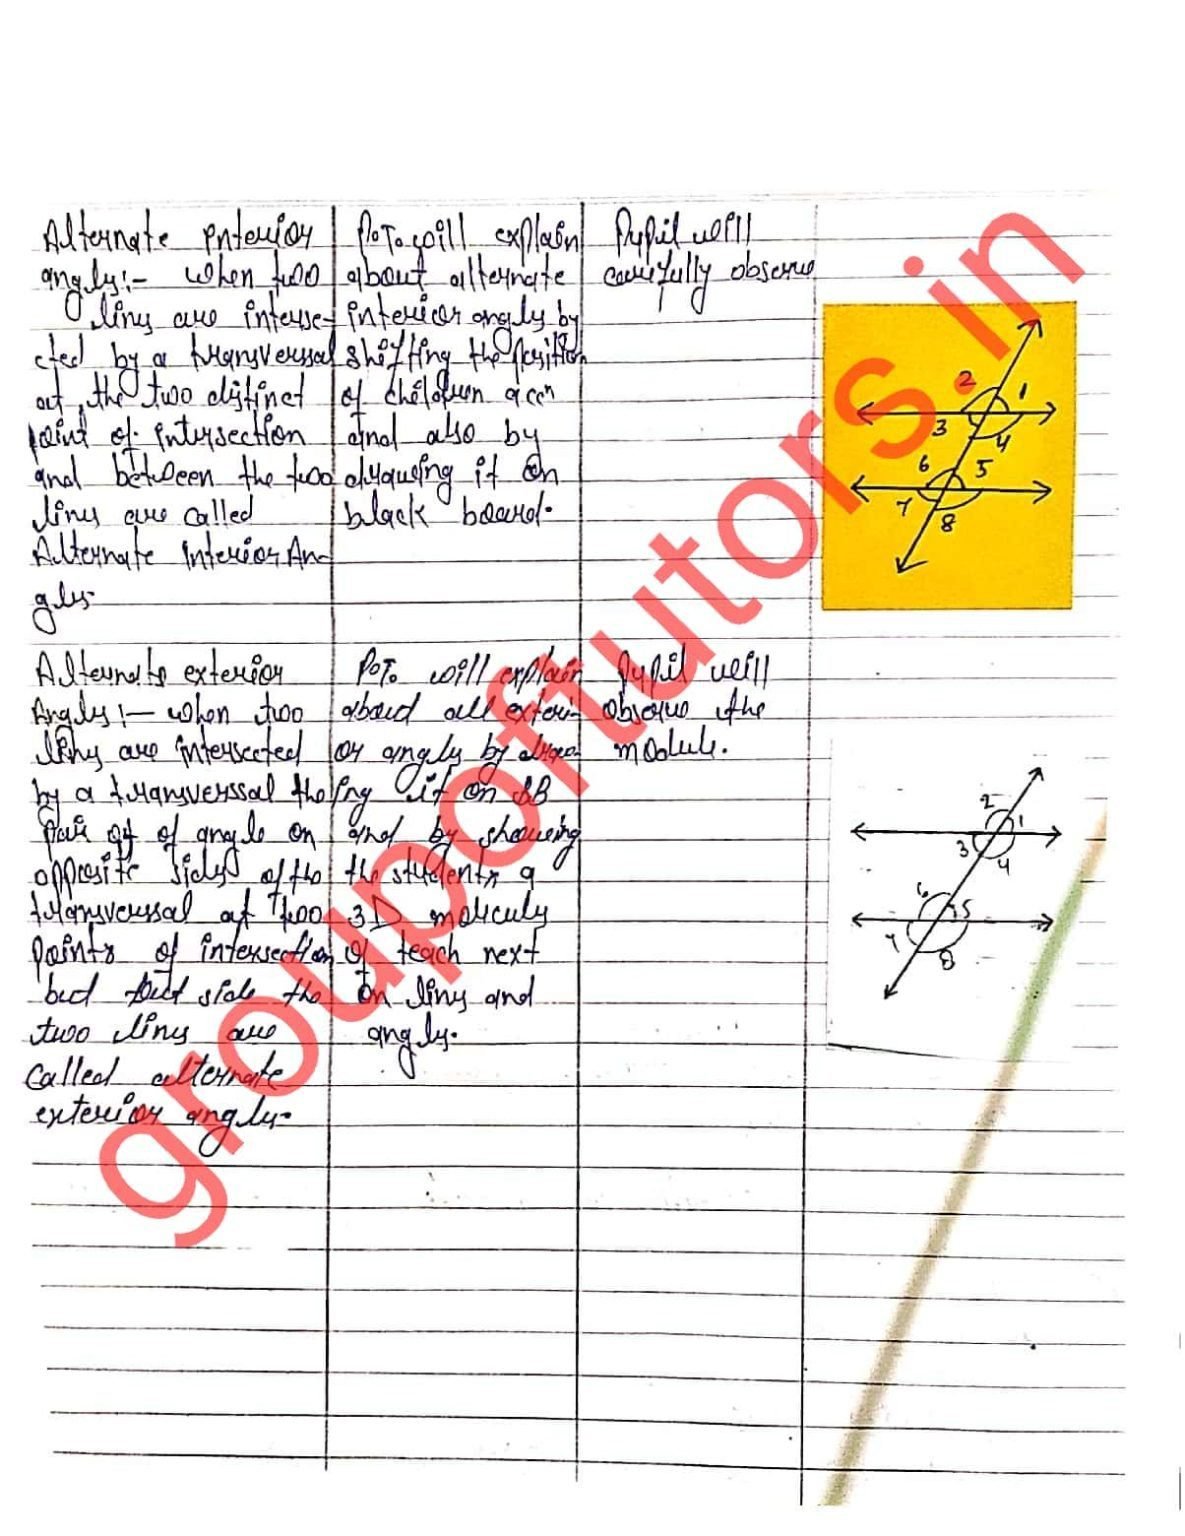 Alternate Interior
angles:- when two
lines are interse-
cted by a transverssal
at the two distinct
point of intersection
and between the two
lines are called
Alternate Interior An
gles.
P.T. will explain
about alternate
interior angles by
shifting the position
of children
and also by
drawing it on
black board.
Pupil will
carefully observe
2 1
3 4
6 5
7 8
Alternate exterior
Angles:- when two
lines are intersected
by a transverssal the
pair of of angle on
opposite sides of the
transverssal at two
points of intersection
but out side the
two lines are
called alternate
exterior angles.
P.T. will explain
about all exteri-
or angles by draw-
ing it on BB
and by showing
the students a
3D
of teach next
on lines and
angles.
Pupil will
observe the
module.
2 1
3 4
6 5
7 8
groupoftutors.in